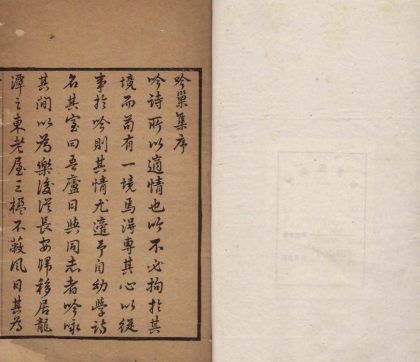 吟巢集序
吟詩所以適情也似不必拘於其
境而苟有一境焉得專其心以從
事於吟則其情尤適予自幼學詩
名其室曰吾廬日與同志者吟咏
其間以為樂後從長安歸移居龍
潭之東老屋三楹不蔽風日其為